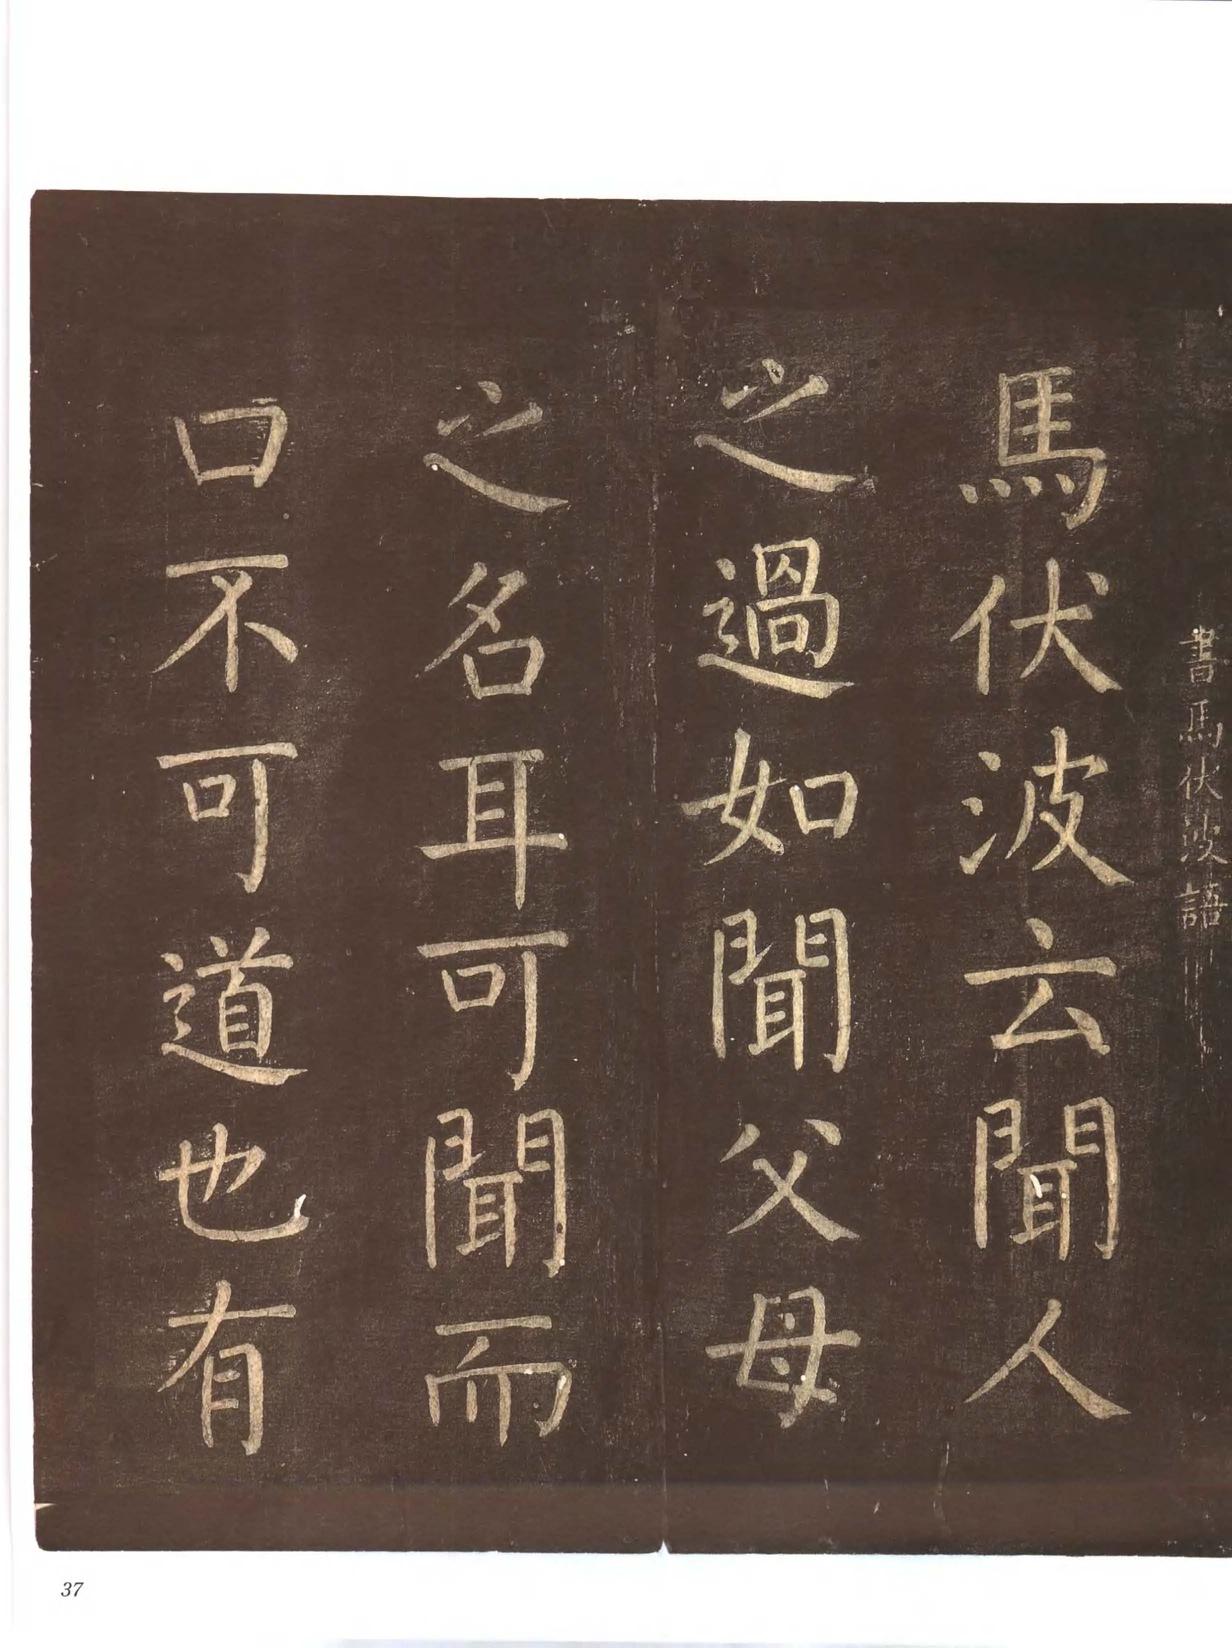 書馬伏波語
馬伏波云聞人
之過如聞父母
之名耳可聞而
口不可道也有
37